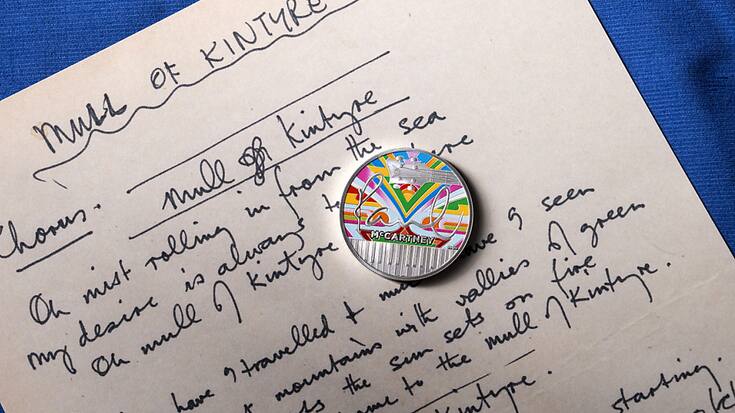 MULL OF KINTYRE
Mull of Kintyre
Chorus.
Oh mist rolling in from the sea
my desire is always to
Oh mull of Kintyre
have I travelled & much have I seen
mountains with vallies of green
the sun sets on fire
to the mull of Kintyre.
Kintyre.
starting.
Paul
McCARTNEY